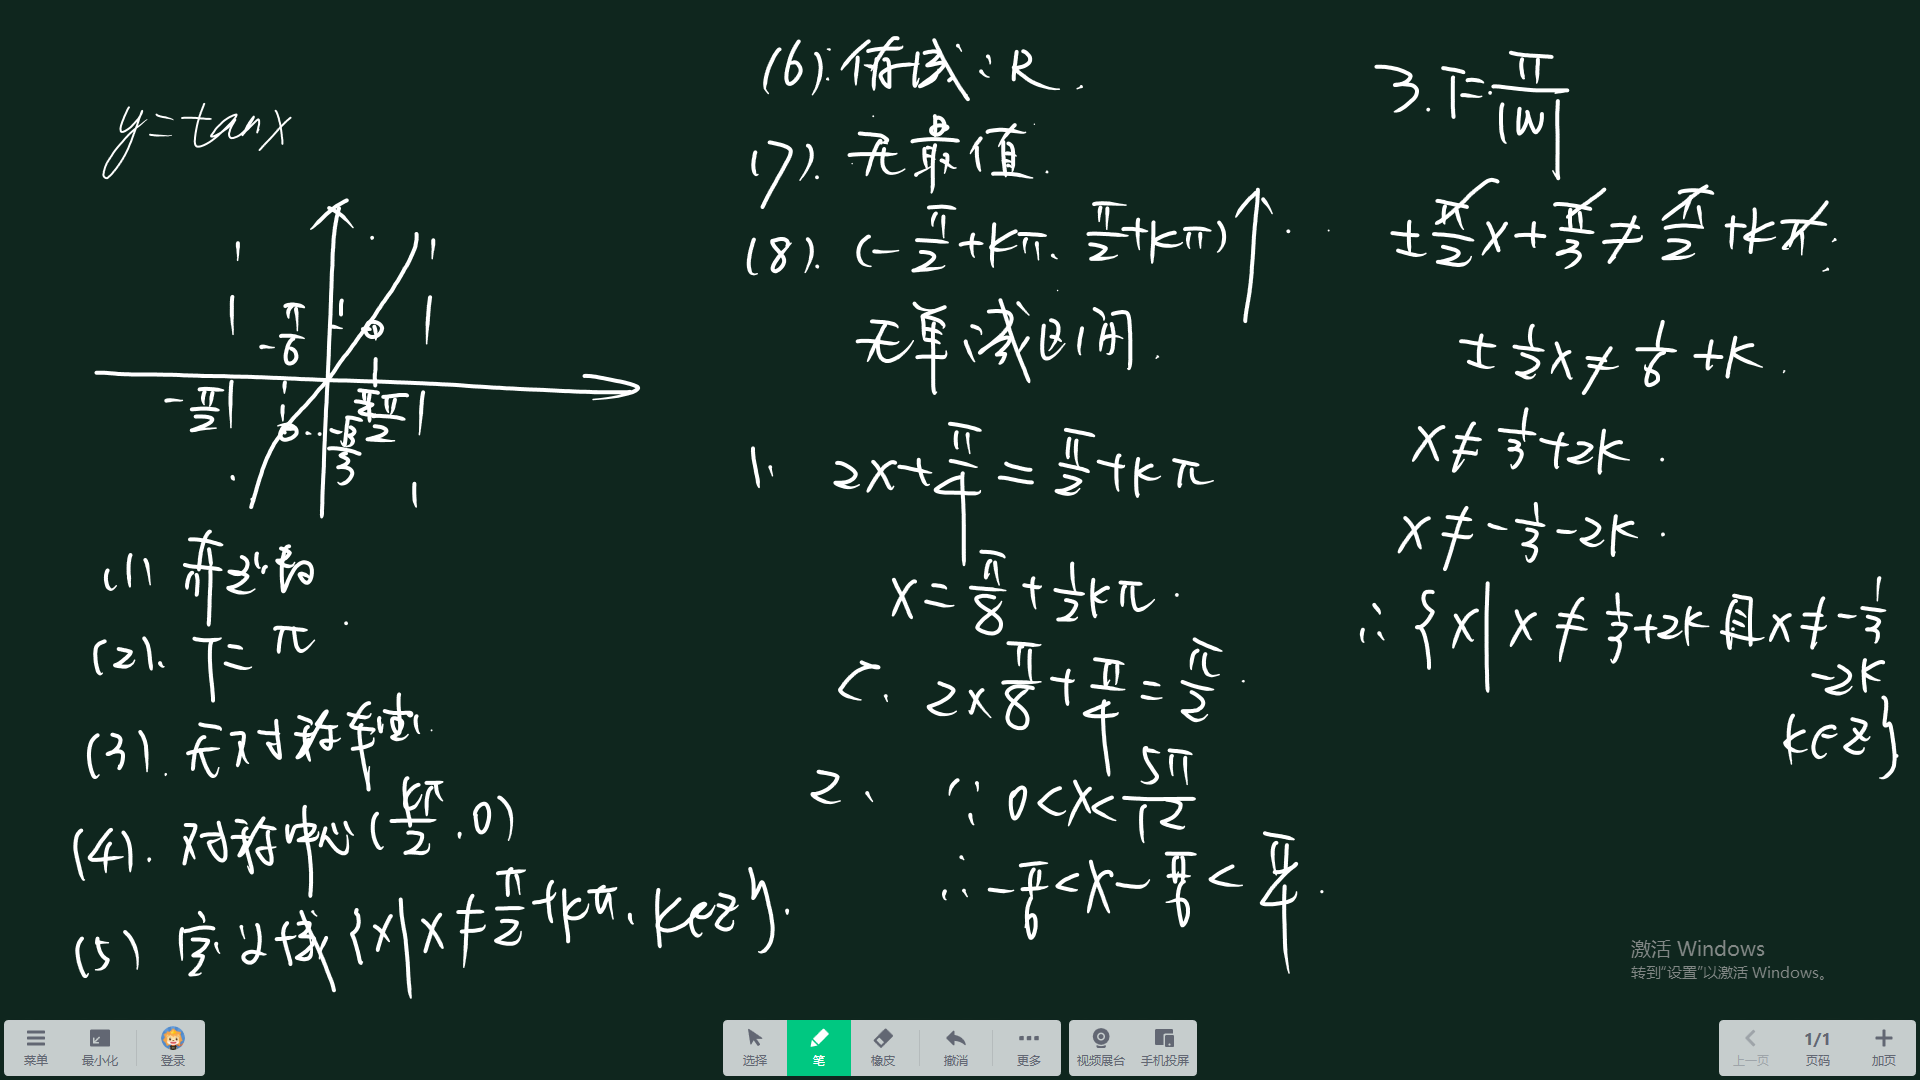 y=tanx
-π/6
1
-π/2
π/4
π/2
-√3/3
(1) 奇函数
(2). T=π
(3). 无对称轴
(4). 对称中心(kπ/2,0)
(5) 定义域{x|x≠π/2+kπ, k∈Z}.
(6). 值域:R.
(7). 无最值.
(8). (-π/2+kπ, π/2+kπ)↑
无单减区间.
1. 2x+π/4=π/2+kπ
x=π/8+1/2kπ.
C. 2×π/8+π/4=π/2.
2. ∵0<x<5π/12
∴-π/6<x-π/6<π/4.
3. T=π/|w|
±π/2x+π/3≠π/2+kπ.
±1/2x≠1/6+k.
x≠1/3+2k.
x≠-1/3-2k.
∴{x|x≠1/3+2k且x≠-1/3
-2k
k∈Z}
激活 Windows
转到“设置”以激活 Windows。
菜单
最小化
登录
选择
笔
橡皮
撤消
更多
视频展台
手机投屏
上一页
1/1
页码
加页